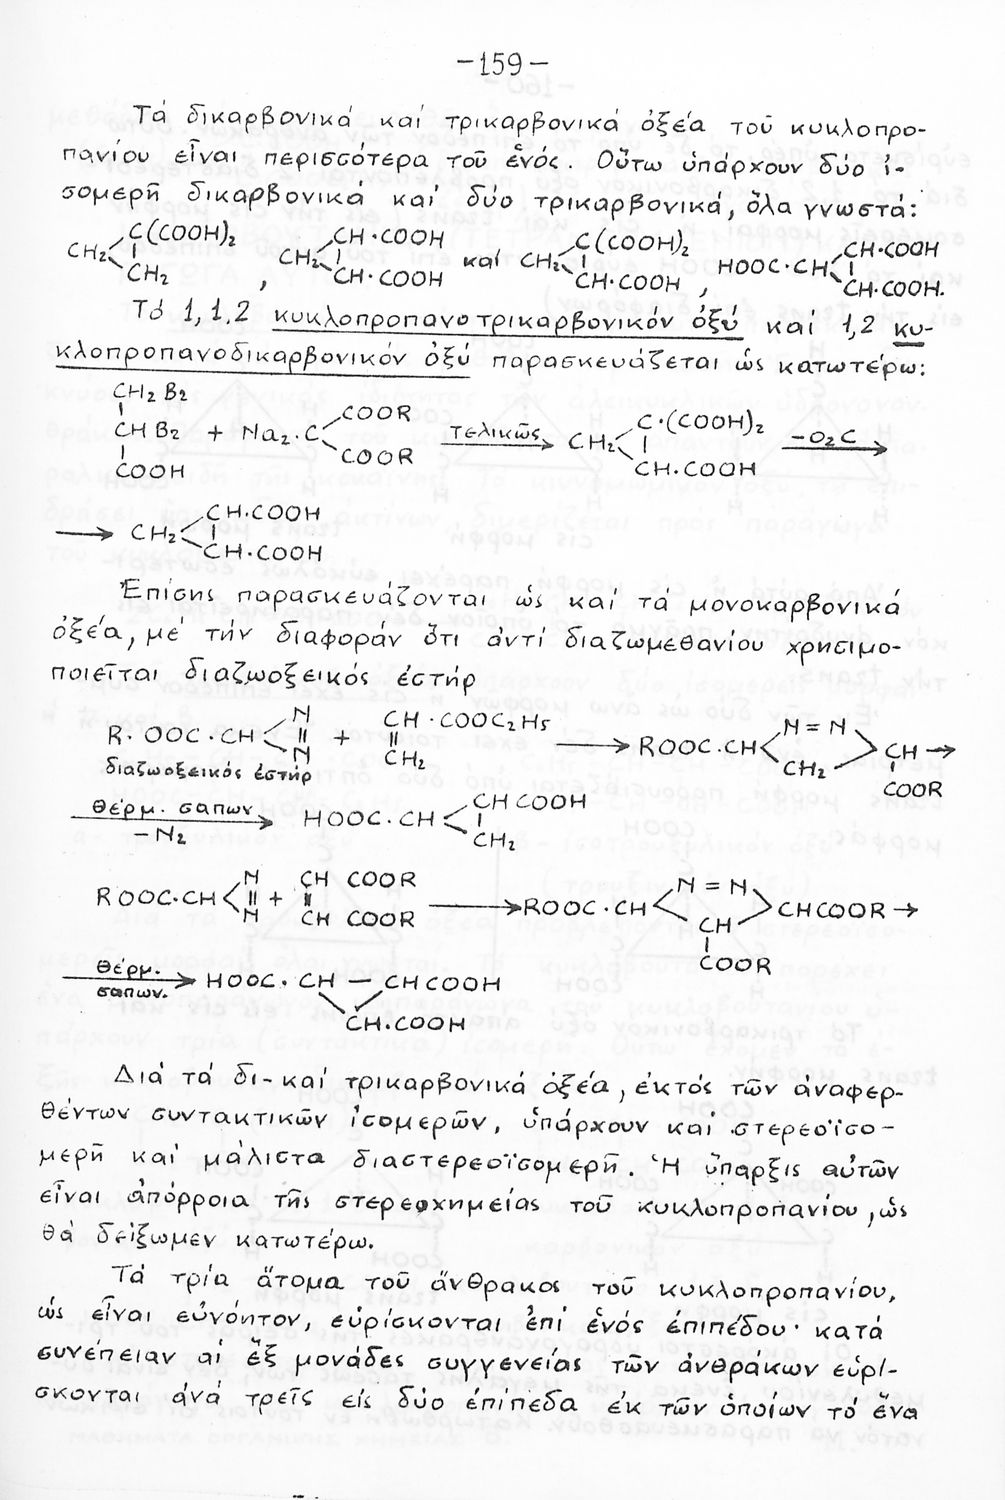 -159-
Τά δικαρβονικά καί τρικαρβονικά ὀξέα τοῦ κυκλοπρο-
πανίου εἶναι περισσότερα τοῦ ἑνός. Οὕτω ὑπάρχουν δύο ἰ-
σομερῆ δικαρβονικά καί δύο τρικαρβονικά, ὅλα γνωστά:
C(COOH)₂ CH·COOH C(COOH)₂ CH·COOH
CH₂ CH₂ καί CH₂ HOOC·CH
CH₂ , CH·COOH CH·COOH , CH·COOH.
Τό 1,1,2 κυκλοπροπανοτρικαρβονικόν ὀξύ καί 1,2 κυ-
κλοπροπανοδικαρβονικόν ὀξύ παρασκευάζεται ὡς κατωτέρω:
CH₂ B₂
COOR C·(COOH)₂
CH B₂ + Na₂·C τελικῶς CH₂ -O₂C
COOH COOR CH·COOH
CH·COOH
CH₂
CH·COOH
Ἐπίσης παρασκευάζονται ὡς καί τά μονοκαρβονικά
ὀξέα, μέ τήν διαφοράν ὅτι ἀντί διαζωμεθανίου χρησιμο-
ποιεῖται διαζωοξεικός ἐστήρ
N CH·COOC₂H₅ N=N
R·OOC·CH ‖ + ‖ → ROOC·CH CH →
N CH₂ CH₂
διαζωοξεικός ἐστήρ COOR
θέρμ. σαπων CH COOH
-N₂ HOOC·CH
CH₂
N CH COOR N=N
ROOC·CH ‖ + ‖ → ROOC·CH CHCOOR →
N CH COOR CH
COOR
θέρμ. HOOC·CH — CHCOOH
σαπων.
CH·COOH
Διά τά δι-καί τρικαρβονικά ὀξέα, ἐκτός τῶν ἀναφερ-
θέντων συντακτικῶν ἰσομερῶν, ὑπάρχουν καί στερεοϊσο-
μερῆ καί μάλιστα διαστερεοϊσομερῆ. Ἡ ὕπαρξις αὐτῶν
εἶναι ἀπόρροια τῆς στερεοχημείας τοῦ κυκλοπροπανίου, ὡς
θά δείξωμεν κατωτέρω.
Τά τρία ἄτομα τοῦ ἄνθρακος τοῦ κυκλοπροπανίου,
ὡς εἶναι εὐνόητον, εὑρίσκονται ἐπί ἑνός ἐπιπέδου· κατά
συνέπειαν αἱ ἕξ μονάδες συγγενείας τῶν ἀνθράκων εὑρί-
σκονται ἀνά τρεῖς εἰς δύο ἐπίπεδα ἐκ τῶν ὁποίων τό ἕνα